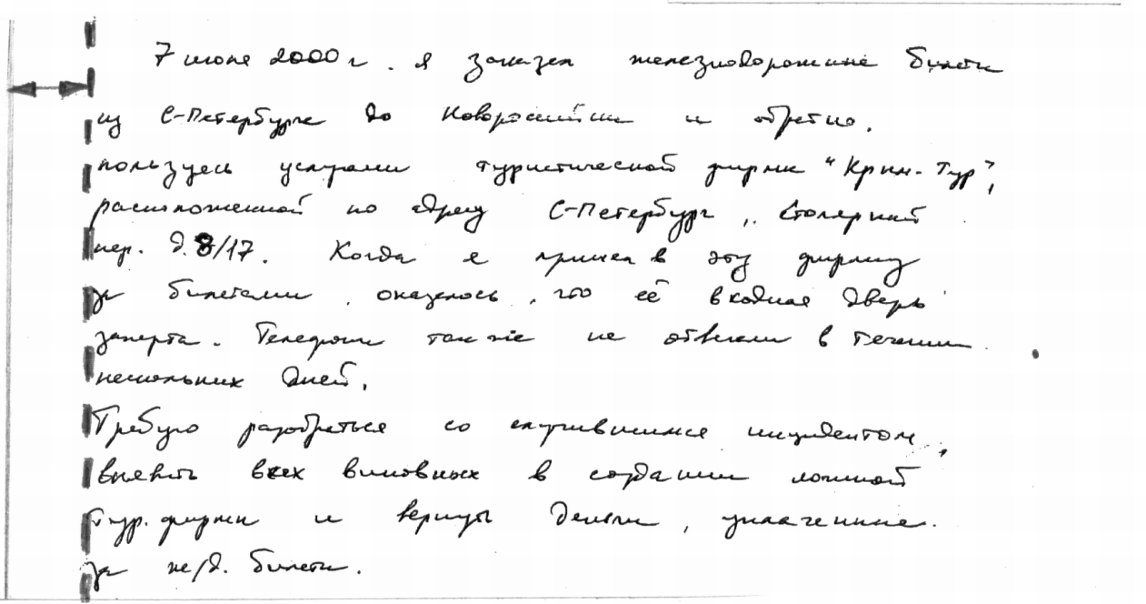 7 июня 2000 г. я заказал железнодорожные билеты
из С-Петербурга до Новороссийска и обратно,
пользуясь услугами туристической фирмы "Крим-Тур",
расположенной по адресу С-Петербург, Столярный
пер. д. 8/17. Когда я пришел в эту фирму
за билетами, оказалось, что её входная дверь
заперта. Телефоны также не отвечали в течении
нескольких дней.
Требую разобраться со случившимся инцидентом,
выявить всех виновных в создании ложной
тур. фирмы и вернуть деньги, уплаченные
за же/д. билеты.